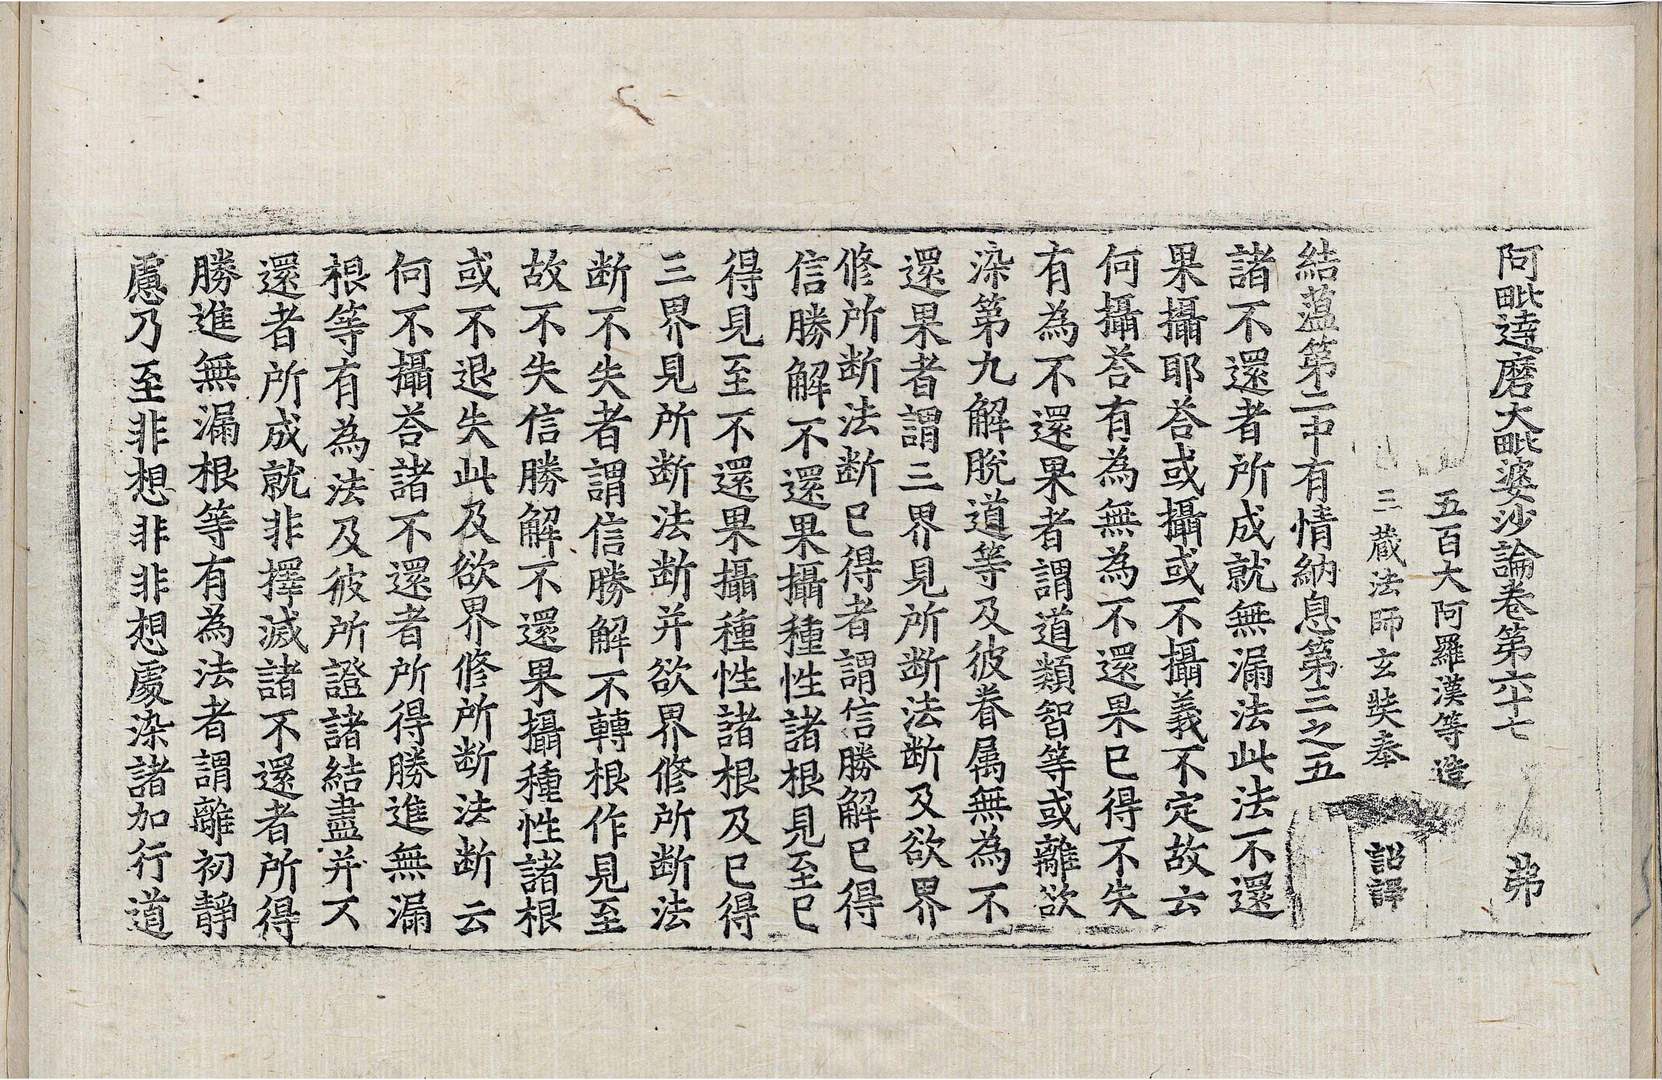 阿毗達磨大毗婆沙論卷第六十七 弗
五百大阿羅漢等造
三藏法師玄奘奉 詔譯
結薀第二中有情納息第三之五
諸不還者所成就無漏法此法不還
果攝耶荅或攝或不攝義不定故云
何攝荅有為無為不還果已得不失
有為不還果者謂道類智等或離欲
染第九解脫道等及彼眷属無為不
還果者謂三界見所断法断及欲界
修所断法断已得者謂信勝解已得
信勝解不還果攝種性諸根見至已
得見至不還果攝種性諸根及已得
三界見所断法断并欲界修所断法
断不失者謂信勝解不轉根作見至
故不失信勝解不還果攝種性諸根
或不退失此及欲界修所断法断云
何不攝荅諸不還者所得勝進無漏
根等有為法及彼所證諸結盡并不
還者所成就非擇滅諸不還者所得
勝進無漏根等有為法者謂離初靜
慮乃至非想非非想處染諸加行道